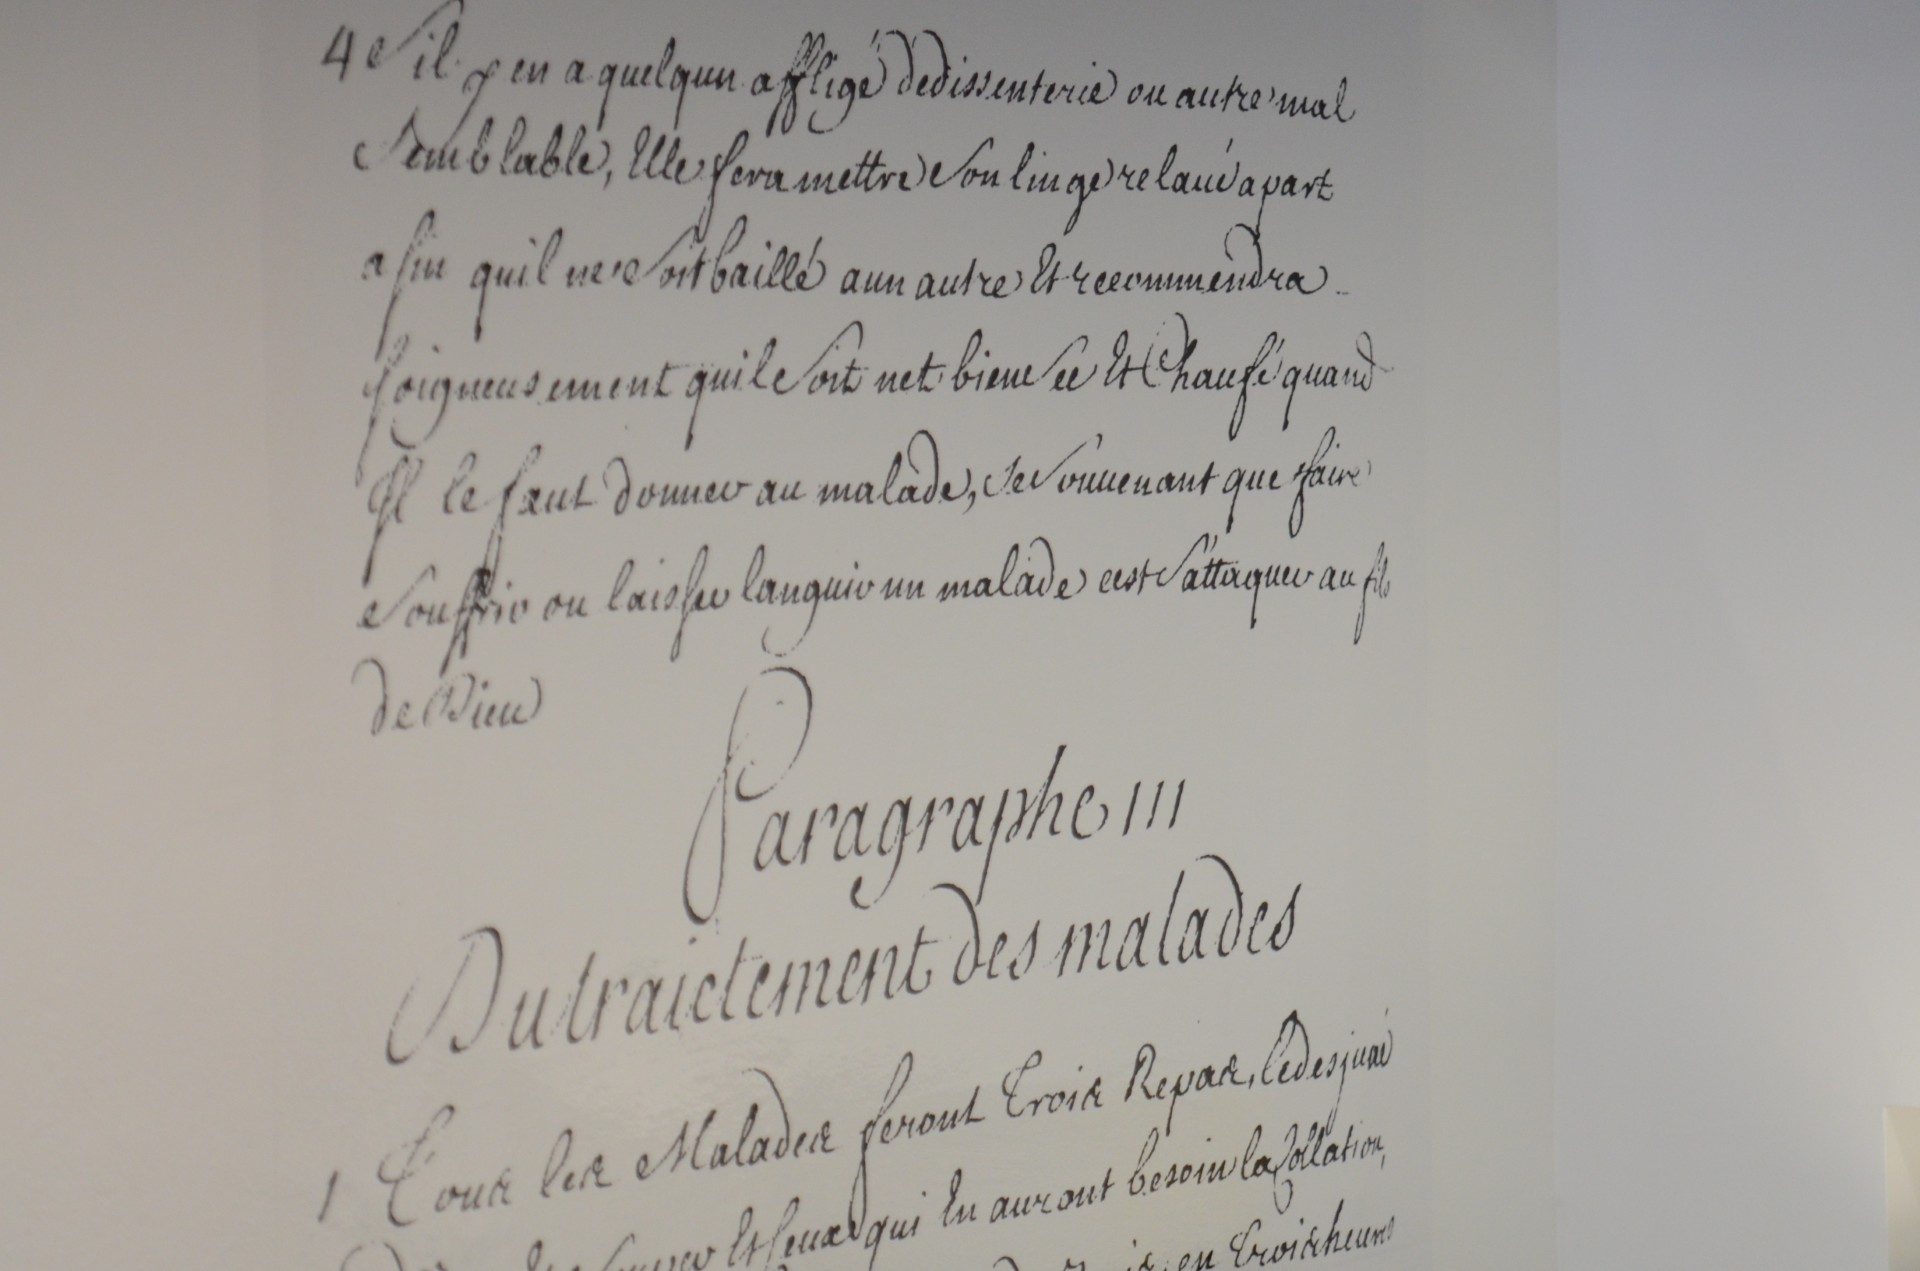 4 S'il y en a quelqun affligé dedissenterie ou autre mal
Semblable, Elle fera mettre Son linge relaué apart
afin quil ne Soit baillé aun autre Et recommendra
soigneusement quil Soit net bien Sec Et Chaufé quand
Il le faut donner au malade, se Souuenant que faire
Souffrir ou laisser languir un malade cest S'attaquer au fils
de Dieu
Paragraphe III
Du traictement des malades
1 Tous les Malades feront Trois Repas, le desjuné
Souper Et Ceux qui En auront besoin la Collation,
en trois heures